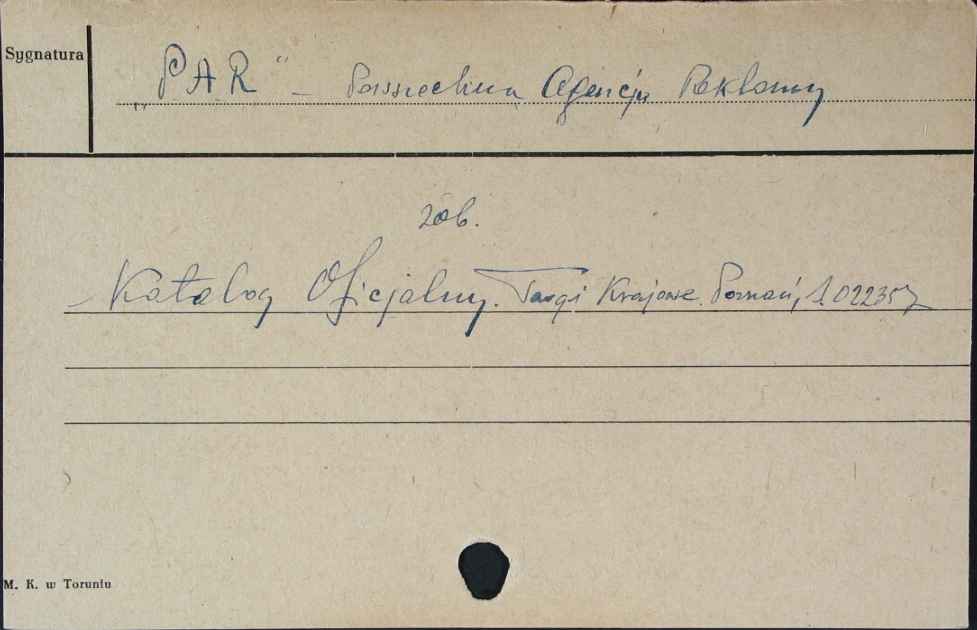 Sygnatura
„PAR" – Powszechna Agencja Reklamy
zob.
Katalog Oficjalny. Targi Krajowe. Poznań, 1022357
M. K. w Toruniu